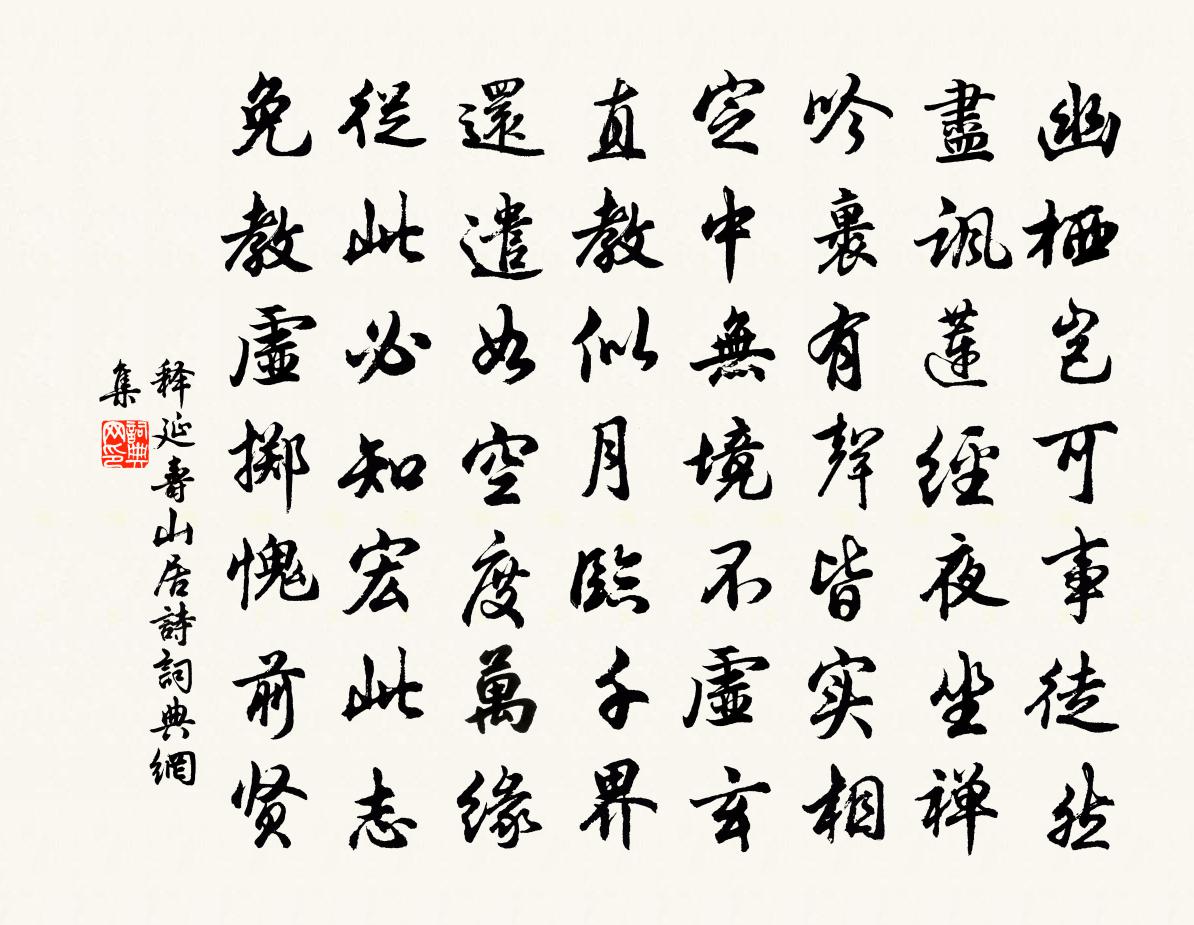 幽栖岂可事徒然
盡諷蓮經夜坐禅
吟裹有聲皆实相
定中無境不虛玄
直教似月臨千界
還遣如空度萬緣
從此必知宏此志
免教虛掷愧前贤
释延壽山居詩詞典網
集
詞典网